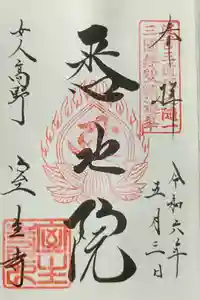 奉拝
令和六年
五月三日
悉地院
女人高野
室生寺